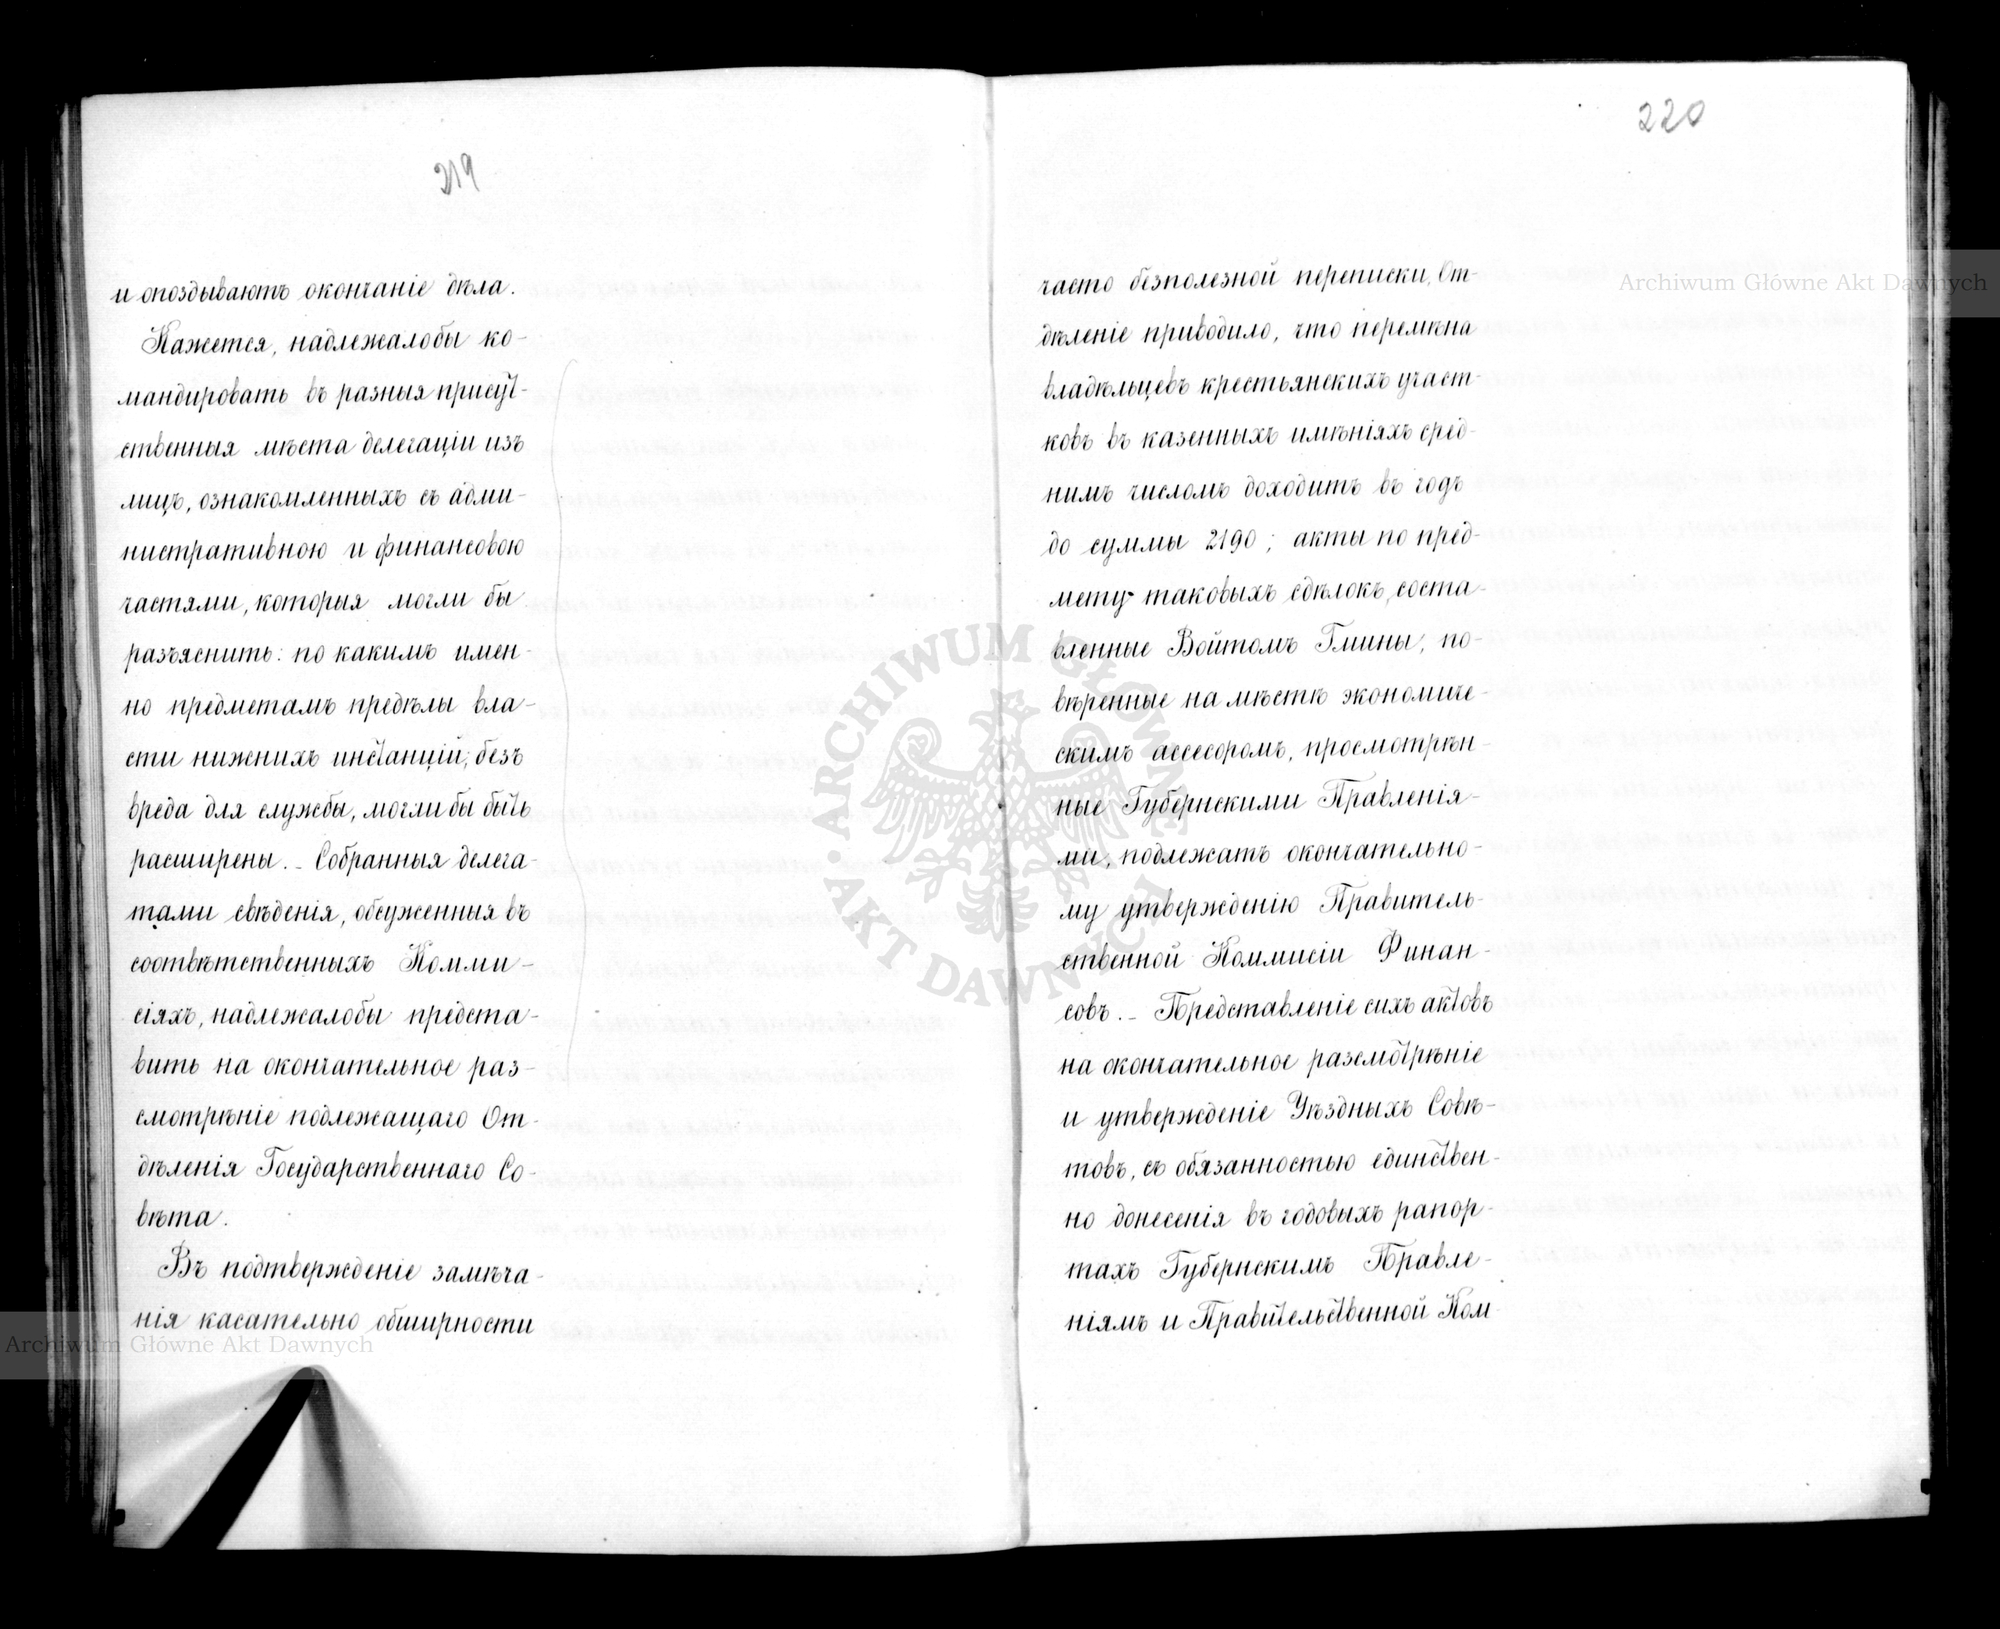 219
и опоздываютъ окончаніе дѣла.
Кажется, надлежалобы ко-
мандировать въ разныя присут-
ственныя мѣста делегаціи изъ
лицъ, ознакомленныхъ съ адми-
нистративною и финансовою
частями, которыя могли бы
разъяснить: по какимъ имен-
но предметамъ предѣлы вла-
сти нижнихъ инстанцій, безъ
вреда для службы, могли бы быть
расширены. – Собранныя делега-
тами свѣденія, обсуженныя въ
соотвѣтственныхъ Комми-
сіяхъ, надлежалобы предста-
вить на окончательное раз-
смотрѣніе подлежащаго От-
дѣленія Государственнаго Со-
вѣта.
Въ подтвержденіе замѣча-
нія касательно обширности
220
часто безполезной переписки, От-
дѣленіе приводило, что перемѣна
владѣльцевъ крестьянскихъ участ-
ковъ въ казенныхъ имѣніяхъ сред-
нимъ числомъ доходитъ въ годъ
до суммы 2190; акты по пред-
мету таковыхъ сдѣлокъ, соста-
вленные Войтомъ Гмины, по-
вѣренные на мѣстѣ экономиче-
скимъ ассесоромъ, просмотрѣн-
ные Губернскими Правленія-
ми, подлежатъ окончательно-
му утвержденію Правитель-
ственной Коммисіи Финан-
совъ. – Представленіе сихъ актовъ
на окончательное разсмотрѣніе
и утвержденіе Уѣздныхъ Совѣ-
товъ, съ обязанностью единствен-
но донесенія въ годовыхъ рапор-
тахъ Губернскимъ Правле-
ніямъ и Правительственной Ком-
Archiwum Główne Akt Dawnych
ARCHIWUM GŁÓWNE • AKT DAWNYCH •
Archiwum Główne Akt Dawnych